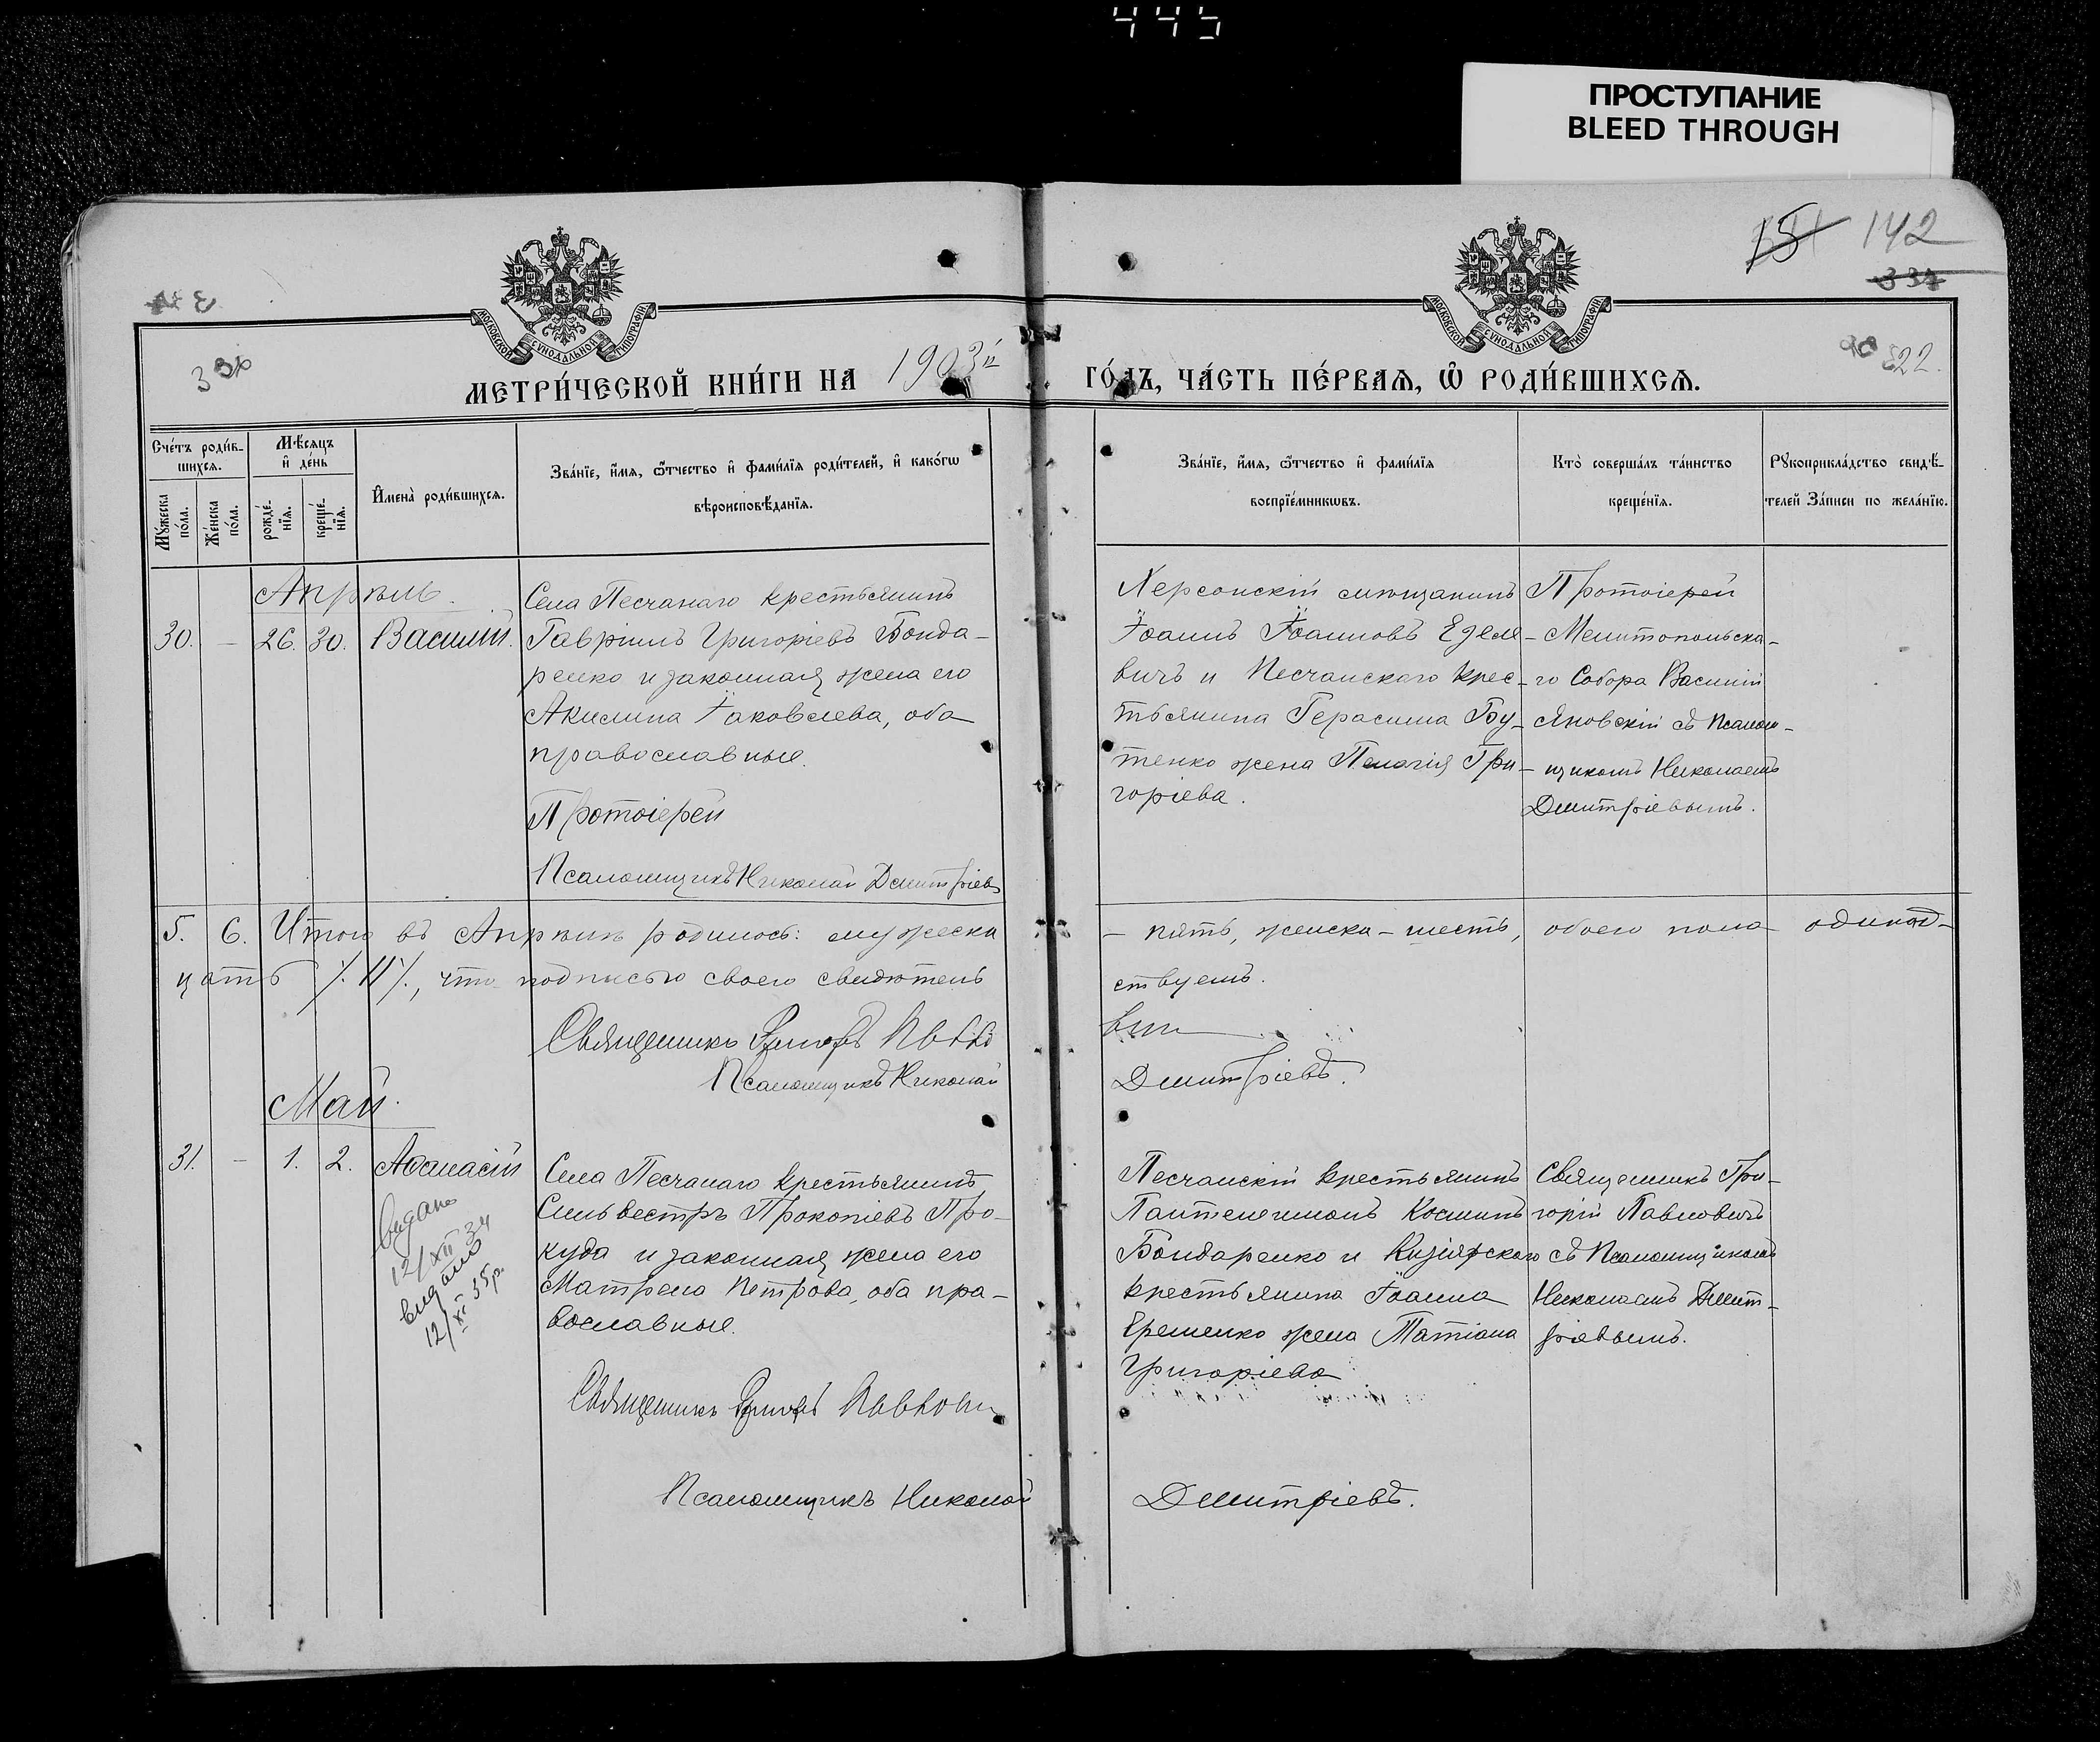 445
ПРОСТУПАНИЕ
BLEED THROUGH
142
МОСКОВСКОЙ СѴНОДАЛЬНОЙ ТИПОГРАФІИ
МОСКОВСКОЙ СѴНОДАЛЬНОЙ ТИПОГРАФІИ
МЕТРИ́ЧЕСКОЙ КНИ́ГИ НА 1903й ГО́ДЪ, ЧА́СТЬ ПЕ́РВАѦ, Ѡ҆ РОДИ́ВШИХСѦ.
Сче́тъ роди́в-
шихсѧ.
Мꙋ́жеска по́ла.
Же́нска по́ла.
Мѣ́сѧцъ и҆ де́нь
рожде́-
нїѧ.
креще́-
нїѧ.
И҆мена̀ роди́вшихсѧ.
Зва́нїе, и҆́мѧ, ѻ҆́тчество и҆ фами́лїѧ роди́телей, и҆ како́гѡ
вѣроисповѣ́данїѧ.
Зва́нїе, и҆́мѧ, ѻ҆́тчество и҆ фами́лїѧ
воспрїе́мникѡвъ.
Кто̀ соверша́лъ та́инство
креще́нїѧ.
Рꙋкоприкла́дство свидѣ́-
телей за́писи по жела́нїю.
Апрѣль.
30. — 26. 30. Василій.
Села Песчанаго крестьянинъ
Гавріилъ Григоріевъ Бонда-
ренко и законная жена его
Акилина Іаковлева, оба
православные.
Протоіерей
Псаломщикъ Николай Дмитріевъ
Херсонскій мѣщанинъ
Іоаннъ Іоанновъ Еделе-
вичъ и Песчанскаго крес-
тьянина Герасима Бу-
тенко жена Пелагія Гри-
горіева.
Протоіерей
Мелитопольска-
го Собора Василій
Яновскій съ Псалом-
щикомъ Николаемъ
Дмитріевымъ.
5. 6. Итого въ Апрѣлѣ родилось: мужеска — пять, женска – шесть, обоего пола одинад-
цать /.11/., что подписью своею свидѣтель ствуемъ.
Священникъ Григорій
Псаломщикъ Николай Дмитріевъ.
Май.
31. — 1. 2. Афанасій
видано
12/XII 34
видано
12/XI 35 р.
Села Песчанаго крестьянинъ
Сильвестръ Прокопіевъ Про-
куда и законная жена его
Матрена Петрова, оба пра-
вославные.
Священникъ Григорій Павлови
Псаломщикъ Николай Дмитріевъ.
Песчанскій крестьянинъ
Пантелеимонъ Косминъ
Бондаренко и Кизіярскаго
крестьянина Іоанна
Еременко жена Татіана
Григоріева
Священникъ Гри-
горій Павловичъ
съ Псаломщикомъ
Николаемъ Дмит-
ріевымъ.